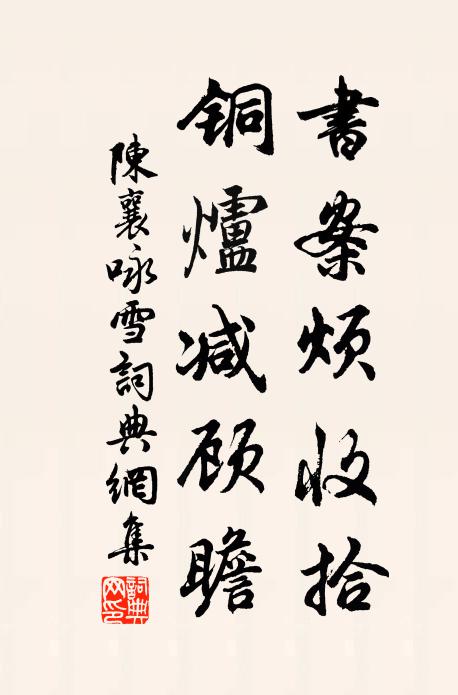 書案煩收拾
銅爐减顾瞻
陳襄咏雪詞典網集
詞典網印